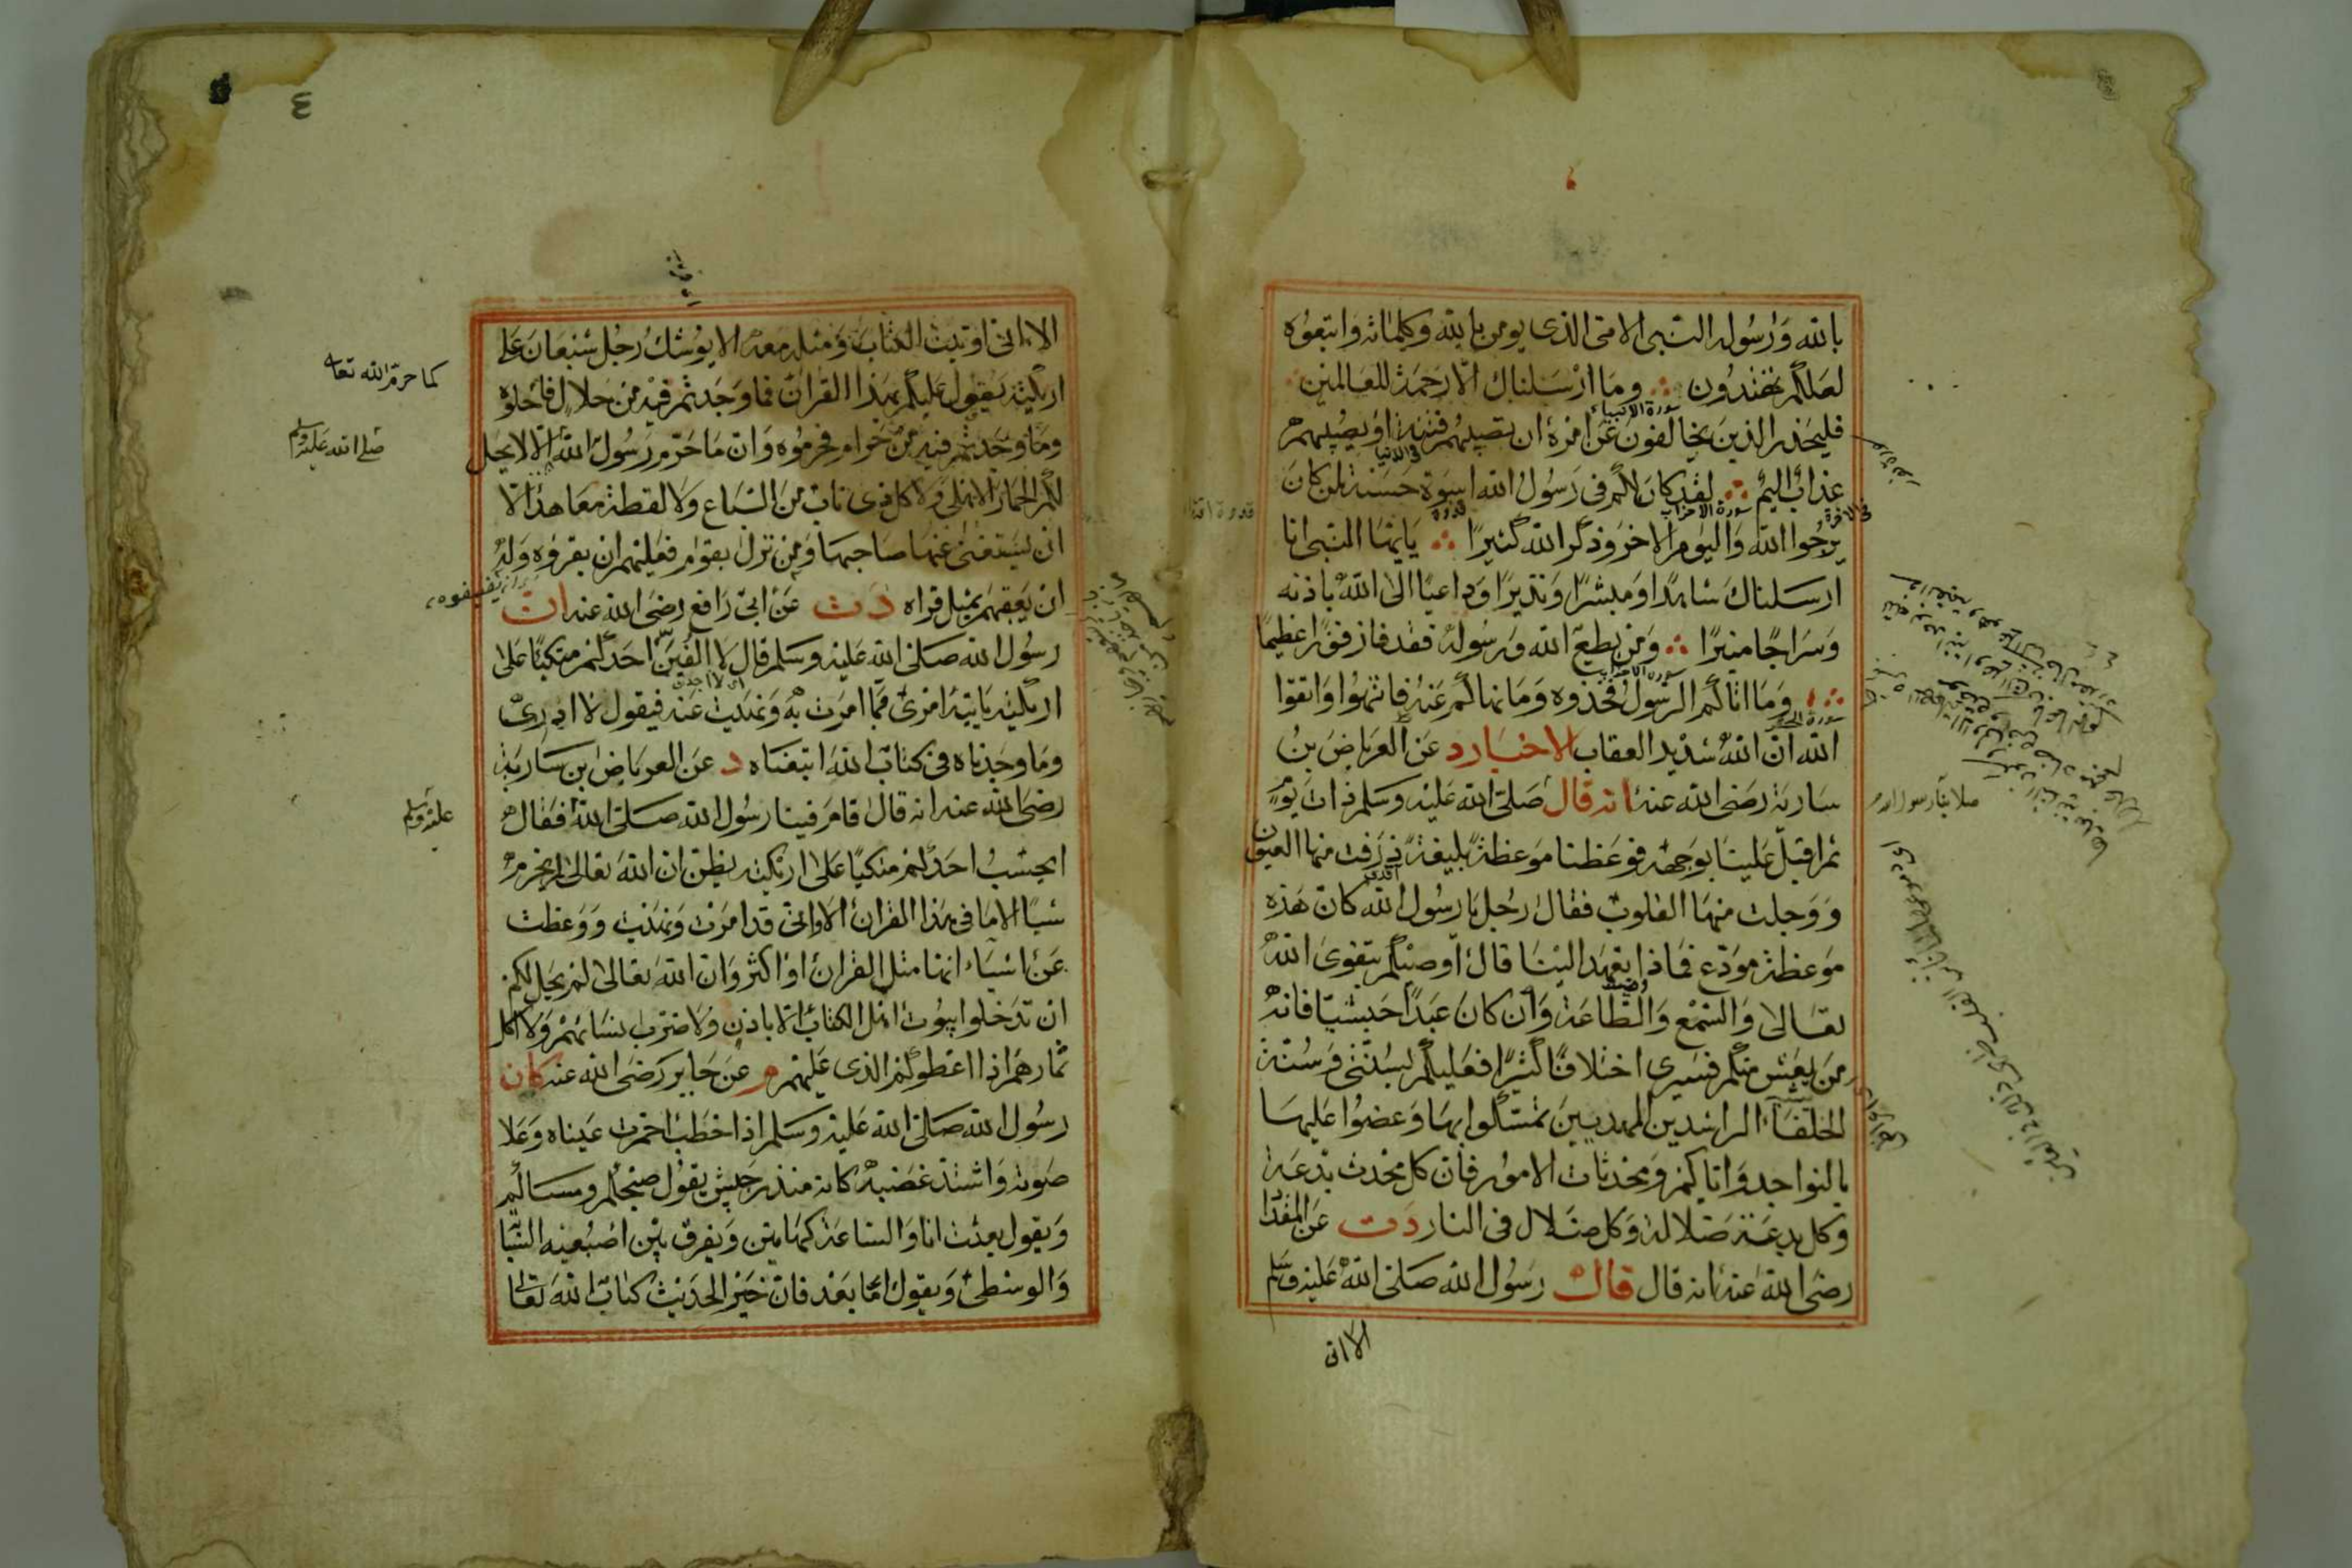 بالله وَرَسُوله النبى الامى الذى يومن بالله وكلماته وَاتبعُوه
لعَلكم تهتدُون ∴ وما ارْسَلناك الّا رَحمَة للعَالمين
سورة الانبياء
فليحذر الذينَ يخالفونَ عَن امْرهْ ان تصيبهُم فتنة اوْ يصُيبهم
فى الدنيا
عذابٌ اليمٌ ∴ لقد كانَ لكم فى رَسُول الله اسوَة حَسَنة لمن كانَ
سورة الاحزاب
قدوة
فى الاخرة
يرجُوا الله وَاليوم الاخرَ وَذكر الله كثيرًا ∴ يَايّهَا النبى انا
ارسَلناكَ شاهدًا وَمبشرًا وَنذيرًا وَداعيًا الى الله باذنه
وَسرَاجًا منيرًا ∴ وَمَن يطع الله وَرسُوله فقد فاز فوزًا عظيمًا
سورة الاحزاب
∴ وَمَا اتاكم الرسُول فخذوه وَمَا نهاكم عَنهُ فانتهُوا وَاتقوُا
سورة الحشر
الله انّ اللهَ شديد العقاب الاخبار د عَن العربَاض بنُ
سَاريَة رَضىَ الله عنهُ انه قال صَلى الله عَليْه وَسلم ذات يَوْم
صلا بنا رسول الله
ثم اقبل عَلينَا بوَجهه فوَعَظنا مَوعظة بليغة ذرَفت منها العيون
وَوَجلت منهَا القلوب فقال رَجُل يَا رسُول الله كانّ هَذه
مَوعظة مودّع فمَاذا تعهَد اليْنَا قال اوصيْكم بتقوىَ الله
تعَالى وَالسَّمْع وَالطّاعَة وَان كانَ عَبدًا حَبشيًّا فانهُ
مَن يعَش منكم فسَيرى اختلافًا كثيرًا فعَليكم بسُنتى وَسُنّة
الخلفَاء الراشدين المهديينَ تمسّكوا بهَا وَعضوُا عَليهَا
بالنواجد وَاياكم وَمحدثات الامُور فانّ كل محدث بدْعَة
وَكل بدعَة ضَلالة وَكل ضلال فى النار دَ ت عَن المقدا
رضىَ الله عَنهُ انه قال قال رسُول الله صَلى الله عَليْه وسَلم
الا انى
٤
الا انى اوتيت الكتاب وَمثله معَه الا يوُشك رجُل شبعَان عَلى
اريكته يَقول عَليكم بهَذا القران فما وَجَدتم فيه من حَلال فاحلوه
كما حرّم الله تعا
وما وَجَدتم فيه من حَرام فحرّموُه وَانّ مَا حَرّم رَسُول الله الّا لا يحل
صلى الله عليه وسلم
لكم الحمار الاهلى وَلا كل ذى ناب من السباع وَلا لقطة معَاهد الّا
ان يستغنى عَنها صَاحبهَا وَمن نزل بقوم فعَليهم ان يقروه وَلهُ
ان يَعقبهم بمثل قراه دَ ت عَن ابى رَافع رضىَ الله عنه انّ
رسُول الله صَلى الله عَليْه وَسلم قال لَا الفيَنّ احَدكم متكئًا عَلى
اى لا اجدنّ
اريكته يَاتيه امْرى ممّا امَرت به وَنهَيت عَنه فيقول لا ادرى
ومَا وَجَدناه فى كتاب الله اتبعْناه د عَن العربَاض بن سَاريَة
رضىَ الله عنه انه قال قامَ فينا رسُول الله صَلى الله فقال
عليه وسلم
ايحسبُ احَدكم متكيًا عَلى اريكته يظن ان الله تعَالى لم يحرم
شيًا الا مَا فى هذا القران الا وانى قد امرت وَنهيت وَوَعظت
عَن اشيَاء انها مثل القران اوْ اكثر وَانّ الله تعَالى لم يَحل لكم
ان تدخلوا بيُوت اهْل الكتاب الّا باذن وَلا ضرب نسَائهم وَلا اكل
ثمارهم اذا اعطوكم الذى عَليْهم م عَن جَابر رَضىَ الله عنه كان
رسُول الله صَلى الله عَليْه وَسلم اذا خَطبَ احْمرت عَيناه وَعَلا
صَوته وَاشتد غضبُه كانه منذر جيش يقول صبحكم ومسَاكم
وَيقول بعثت انا وَالسّاعَة كهَاتين وَيفرق بيْن اصبُعيْه السّبّا
وَالوسطى وَيقول امّا بَعْد فانّ خيْر الحَديث كتاب الله تعا